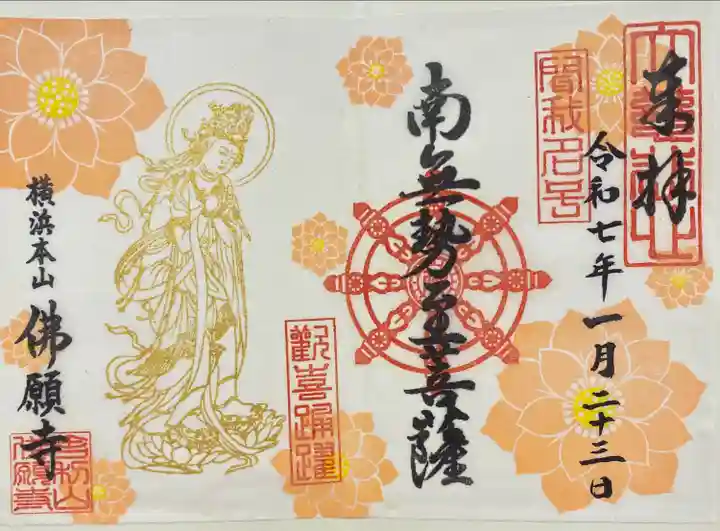 来拝
聞我名号
令和七年一月二十三日
南無勢至菩薩
歡喜踊躍
横浜本山
佛願寺